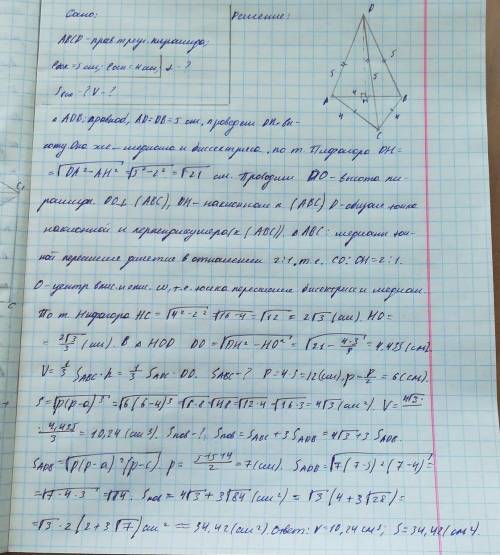 Дано: Решение:
ABCD - прав. треуг. пирамида,
5 см, 4 см, - ?
S - ? V - ?
D
5 5 5
A 4 B
4 4
C
△ ADB: AD=DB=5 см, проводим DH - вы-
соту. Она же - медиана и биссектриса, по т. Пифагора DH =
= √DA²-AH² = √5²-2² = √21 см. Проводим DO - высота пи-
рамиды. DO⊥(ABC), DH - наклонная к (ABC) D - общая точка
наклонной и перпендикуляра (к (ABC)). △ABC: медианы точ-
кой пересечения делятся в отношении 2:1, т.е. CO:OH=2:1.
O - центр впис. и опис. т.е. точка пересечения биссектрис и медиан.
По т. Пифагора HC = √4²-2² = √16-4 = √12 = 2√3 (см). HO =
= 2√3/3 (см). В △ HOD DO = √DH²-HO² = √21 - 4·3/9 = 4,435 (см).
V = 1/3 S_ABC · h = 1/3 S_ABC · DO. S_ABC - ? P = 4·3 = 12 (см), p = P/2 = 6 (см).
S = √p(p-a)³ = √6(6-4)³ = √6·8 = √48 = √12·4 = √16·3 = 4√3 (см²). V = 4√3 ·
· 4,435/3 = 10,24 (см³). Sпов - ?, Sпов = S_ABC + 3 S_ADB = 4√3 + 3 S_ADB.
S_ADB = √p(p-a)²(p-c). p = 5+5+4/2 = 7 (см). S_ADB = √7(7-5)²(7-4) =
= √7·4·3 = √84. Sпов = 4√3 + 3√84 (см²) = √3(4+3√28) =
= √3·2(2+3√7) см² = 34,42 (см²). Ответ: V = 10,24 см³; S = 34,42 (см²).